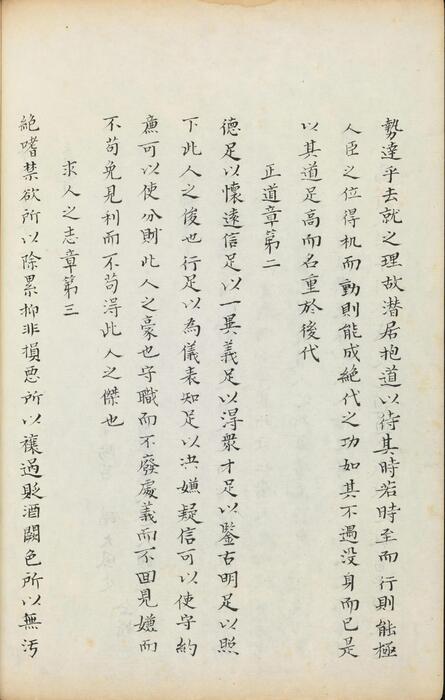 勢達乎去就之理故潜居抱道以待其時若時至而行則能極
人臣之位得机而動則能成絕代之功如其不遇没身而已是
以其道足高而名重於後代
正道章第二
德足以懷遠信足以一異義足以淂衆才足以鑒古明足以照
下此人之俊也行足以為儀表知足以决嫌疑信可以使守約
㢘可以使分則此人之豪也守職而不廢處義而不回見嫌而
不苟免見利而不苟淂此人之傑也
求人之志章第三
絕嗜禁欲所以除累抑非損惡所以禳過貶酒闕色所以無汚